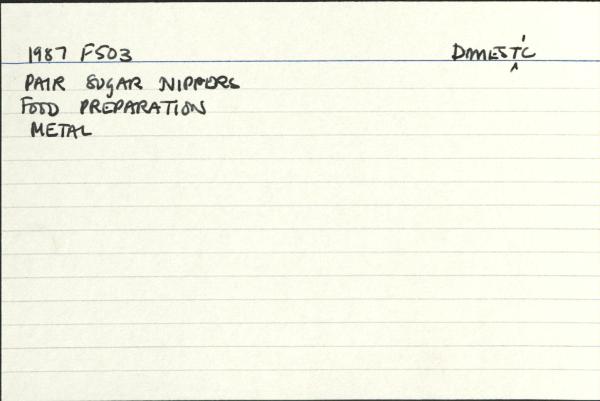 1987 F503 DOMESTIC
PAIR SUGAR NIPPERS
FOOD PREPARATION
METAL